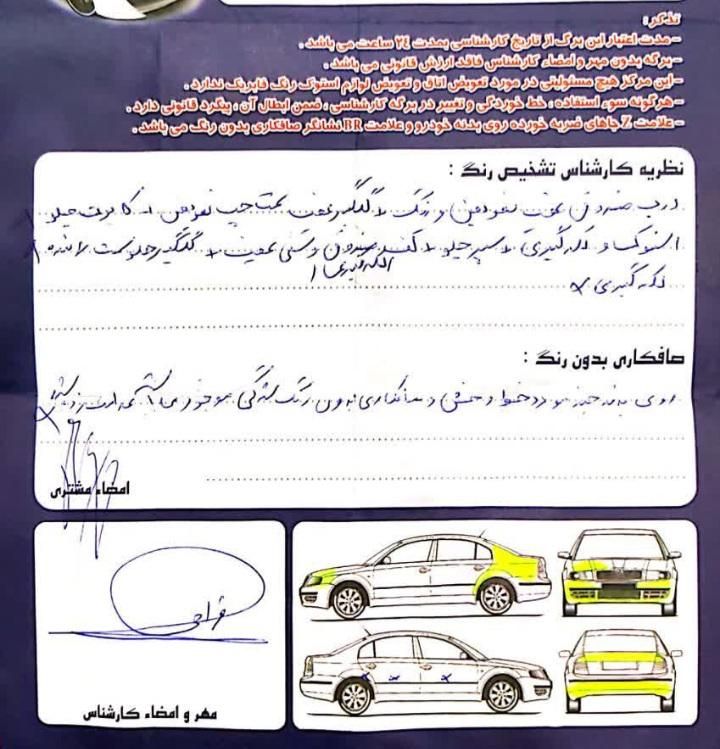 تذکر:
- مدت اعتبار این برگ از تاریخ کارشناسی بمدت ۲۴ ساعت می باشد .
- برگه بدون مهر و امضاء کارشناس فاقد ارزش قانونی می باشد .
- این مرکز هیچ مسئولیتی در مورد تعویض اتاق و تعویض لوازم استوک رنگ فابریک ندارد .
- هرگونه سوء استفاده ، خط خوردگی و تغییر در برگه کارشناسی ، ضمن ابطال آن ، پیگرد قانونی دارد .
- علامت ٪ جاهای ضربه خورده روی بدنه خودرو و علامت BR نشانگر صافکاری بدون رنگ می باشد .
نظریه کارشناس تشخیص رنگ :
درب صندوق عقب تعویض و رنگ گلگیر عقب سمت چپ تعویض کاپوت جلو
استوک و لکه گیری سپر جلو کف صندوق و سینی عقب گلگیر جلو سمت
لکه گیری
صافکاری بدون رنگ :
روی بدنه چند مورد خط و خش و صافکاری بدون رنگ موجود می باشد
امضاء مشتری
مهر و امضاء کارشناس